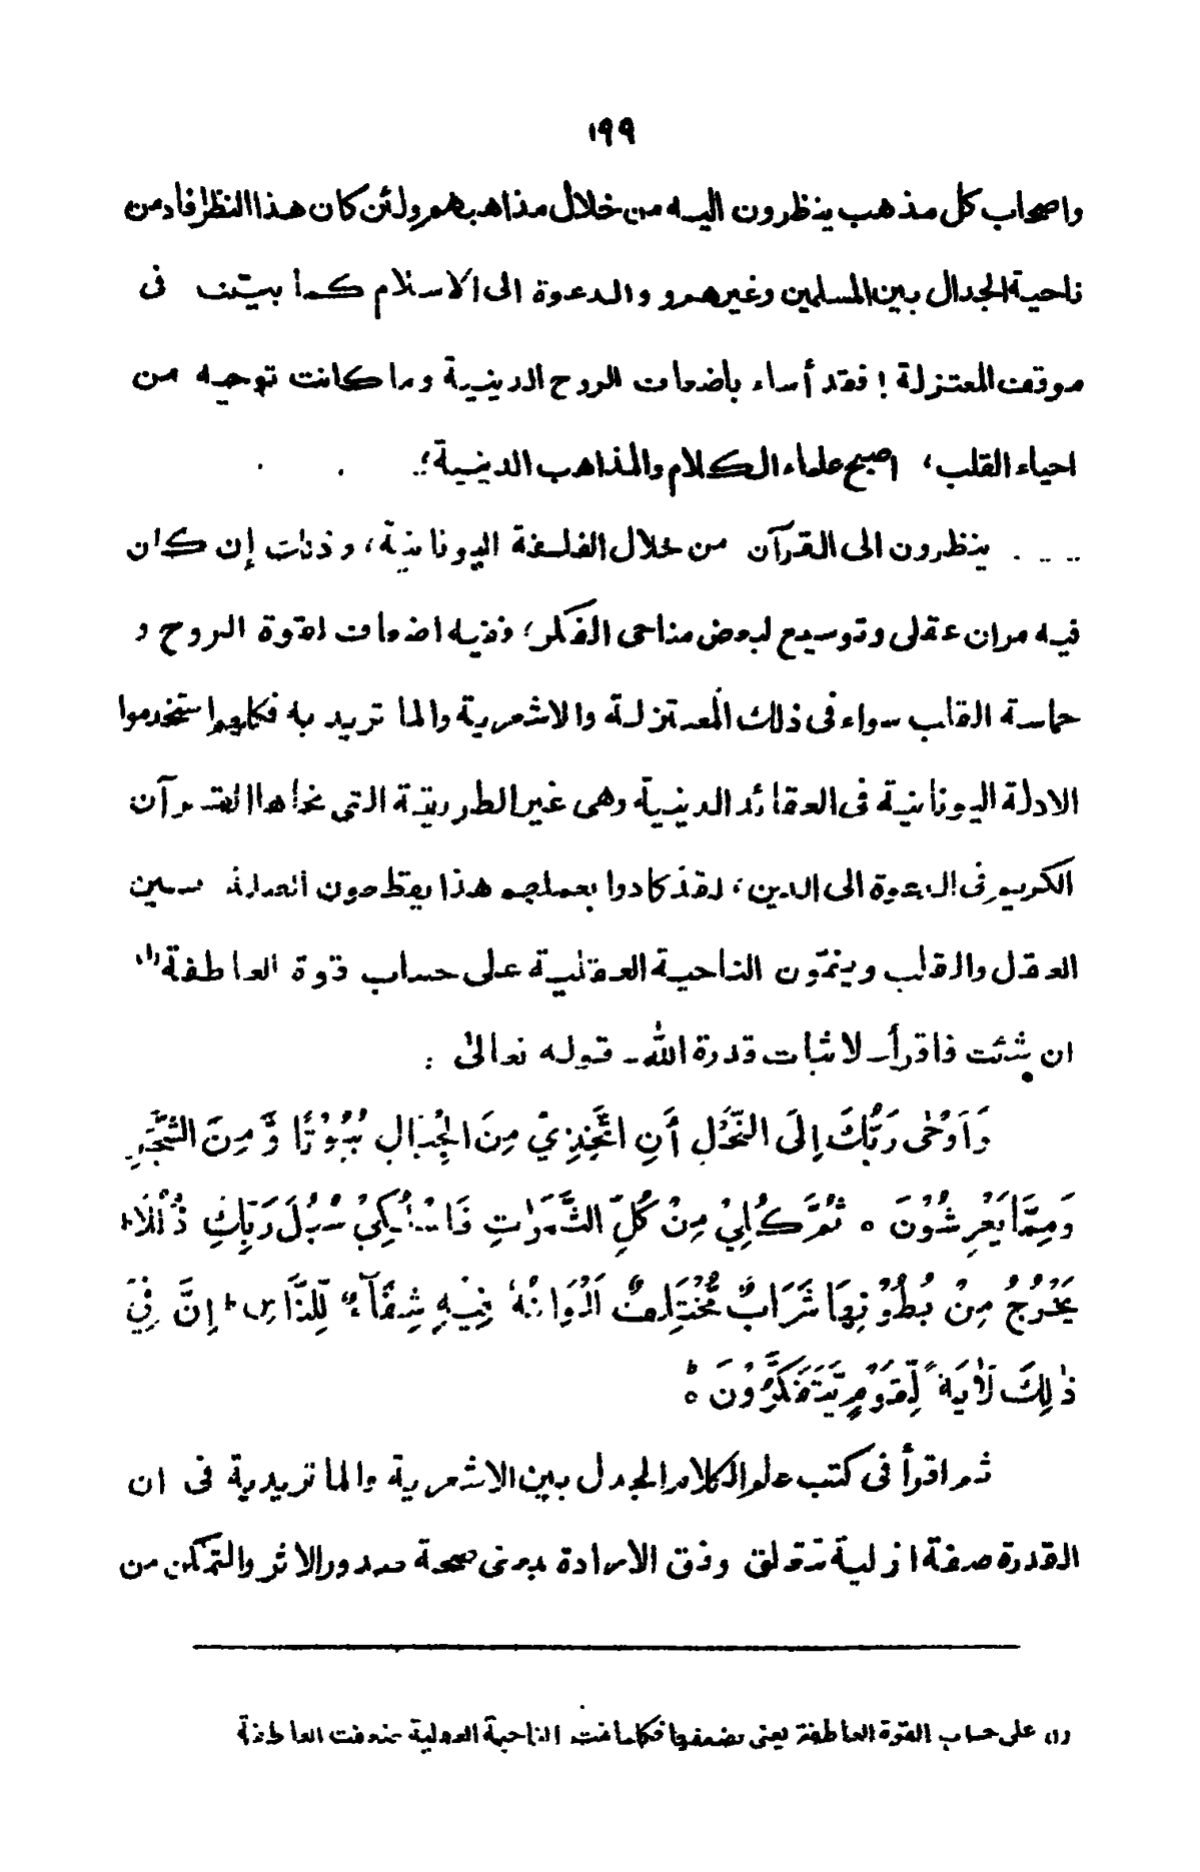 ١٩٩
واصحاب كل مذهب ينظرون اليه من خلال مذاهبهم ولئن كان هذا النظر افاد من
ناحية الجدال بين المسلمين وغيرهم و والدعوة الى الاسلام كما بيّنت فى
موقف المعتزلة ! فقد أساء باضعاف الروح الدينية وما كانت توحيه من
احياء القلب، اصبح علماء الكلام والمذاهب الدينية؛.
.... ينظرون الى القرآن من خلال الفلسفة اليونانية، وذلك إن كان
فيه مران عقلى وتوسيع لبعض مناحى الفكر؛ ففيه اضعاف لقوة الروح و
حماسة القلب سواء فى ذلك المعتزلة والاشعرية والما تريد به فكلهم استخدموا
الادلة اليونانية فى العقائد الدينية وهى غير الطريقة التى نحاها القرآن
الكريم فى الدعوة الى الدين؛ لقد كادوا بعملهم هذا يقطعون الصلة بين
العقل والقلب وينمّون الناحية العقلية على حساب قوة العاطفة (١)
ان شئت فاقرأ ـ لاثبات قدرة الله ـ قوله تعالىٰ :
وَاَوْحٰى رَبُّكَ اِلَى النَّحْلِ أَنِ اتَّخِذِيْ مِنَ الْجِبَالِ بُيُوْتًا وَّ مِنَ الشَّجَرِ
وَمِمَّا يَعْرِشُوْنَ ه ثُمَّ كُلِيْ مِنْ كُلِّ الثَّمَرٰتِ فَاسْلُكِيْ سُبُلَ رَبِّكِ ذُلُلًا ؕ
يَخْرُجُ مِنْ بُطُوْنِهَا شَرَابٌ مُّخْتَلِفٌ اَلْوَانُهٗ فِيْهِ شِفَآءٌ لِّلنَّاسِ ؕ اِنَّ فِيْ
ذٰلِكَ لَاٰيَةً لِّقَوْمٍ يَّتَفَكَّرُوْنَ ه
ثم اقرأ فى كتب علم الكلام الجدل بين الاشعرية والما تريدية فى ان
القدرة صفة ازلية تتعلق وفق الارادة بمعنى صحة صدور الاثر والتمكن من
(١) على حساب القوة العاطفة يعنى تضعفها فكلما نمت الناحية العقلية ضعفت العاطفة